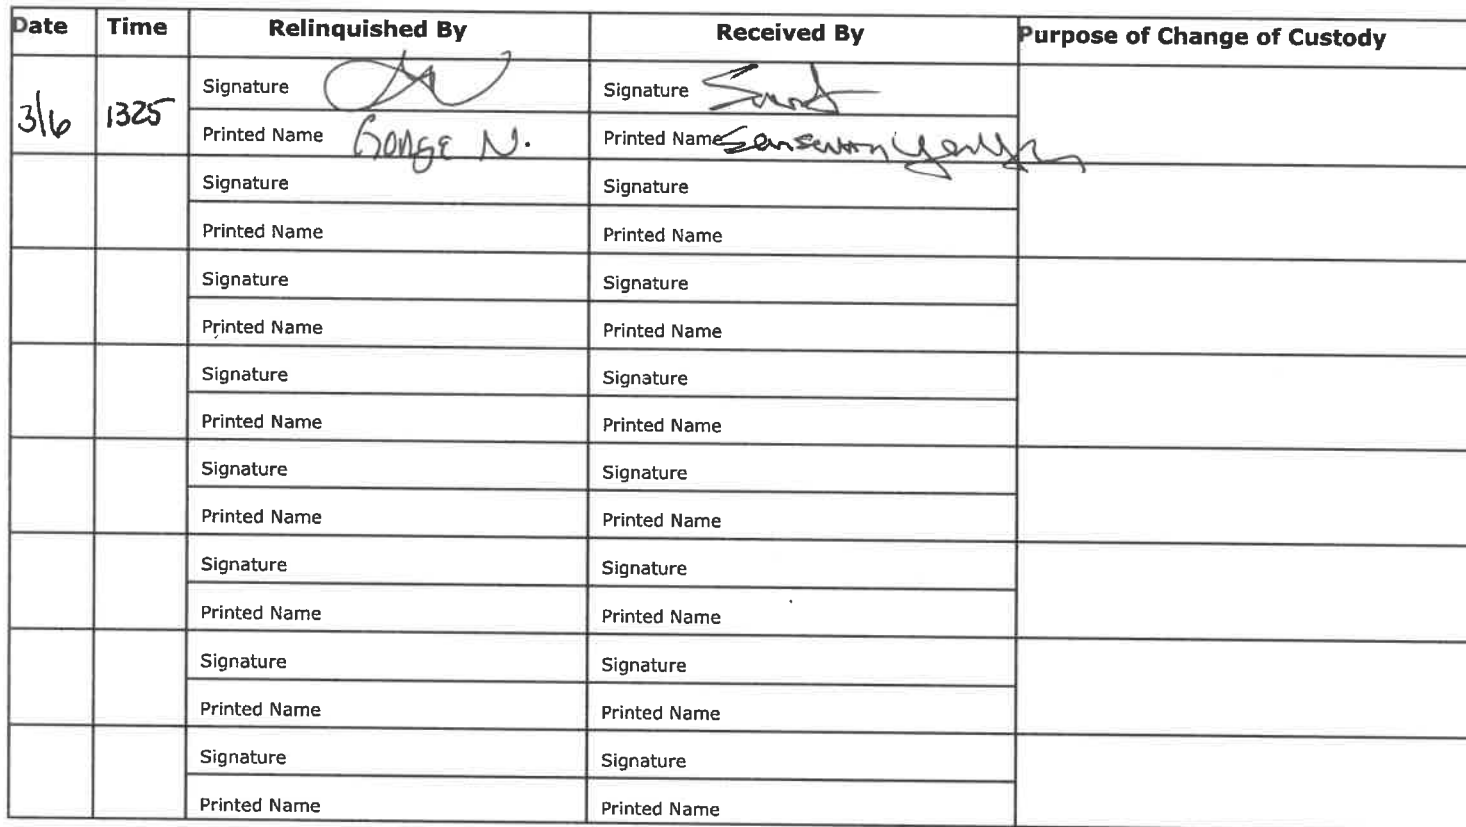 Date Time Relinquished By Received By Purpose of Change of Custody
Signature Signature
3/6 1325
Printed Name Printed Name
Signature Signature
Printed Name Printed Name
Signature Signature
Printed Name Printed Name
Signature Signature
Printed Name Printed Name
Signature Signature
Printed Name Printed Name
Signature Signature
Printed Name Printed Name
Signature Signature
Printed Name Printed Name
Signature Signature
Printed Name Printed Name